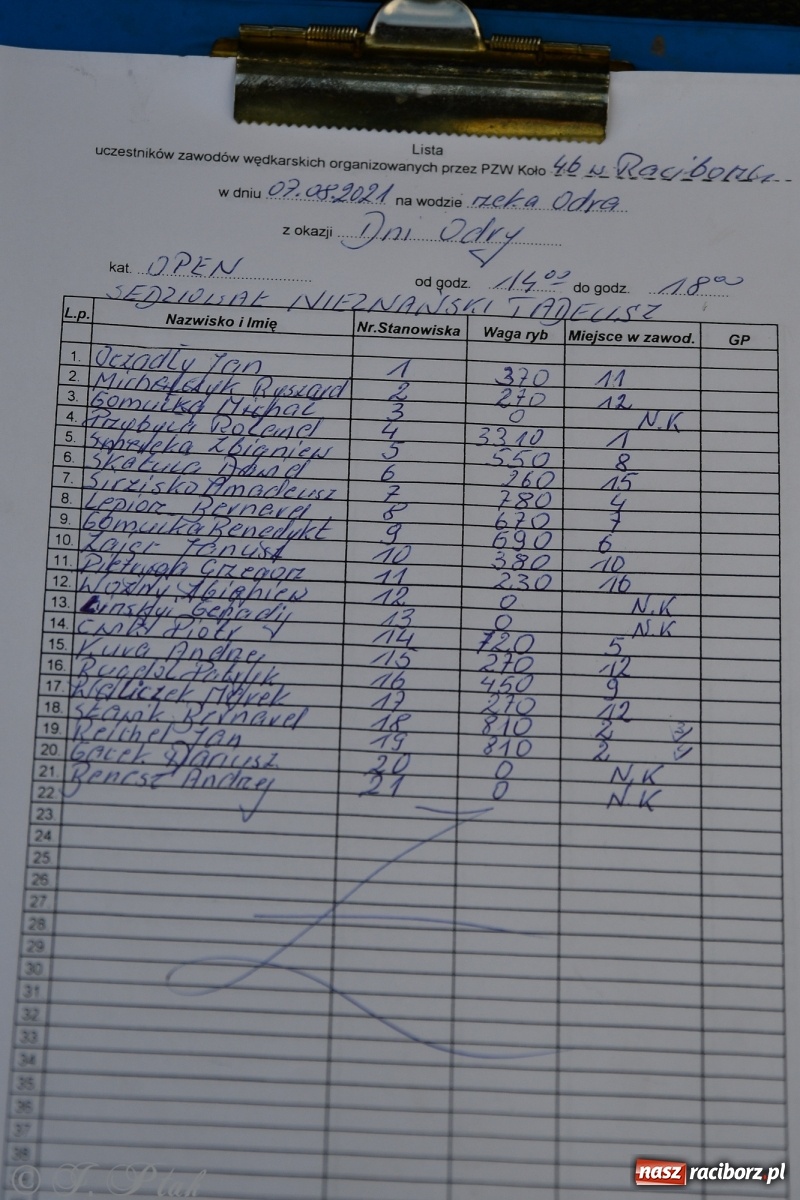 Lista
uczestników zawodów wędkarskich organizowanych przez PZW Koło 46 w Raciborzu
w dniu 07.08.2021 na wodzie rzeka Odra
z okazji Dni Odry
kat. OPEN od godz. 14⁰⁰ do godz. 18⁰⁰
SĘDZIOWAŁ NIEZNAŃSKI TADEUSZ
L.p. Nazwisko i Imię Nr.Stanowiska Waga ryb Miejsce w zawod. GP
1. Oczadły Jan 1 370 11
2. Michalczyk Ryszard 2 270 12
3. Gomułka Michał 3 0 N.K
4. Przybyła Roland 4 3310 1
5. Zbigniew 5 550 8
6. Skatuła Dawid 6 260 15
7. Amadeusz 7 780 4
8. Lepiorz Bernard 8 670 7
9. Gomułka Benedykt 9 690 6
10. Zajer Janusz 10 380 10
11. Grzegorz 11 230 16
12. Woźny Zbigniew 12 0 N.K
13. Genadij 13 0 N.K
14. Piotr 14 720 5
15. Kura Andrzej 15 270 12
16. Patryk 16 450 9
17. Marek 17 270 12
18. Słapik Bernard 18 810 2
19. Reichel Jan 19 810 2
20. Gacek Dariusz 20 0 N.K
21. Benesz Andrzej 21 0 N.K
22
23
24
25
26
27
28
29
30
31
32
33
34
35
36
37
38
© J. Ptak
nasz raciborz.pl